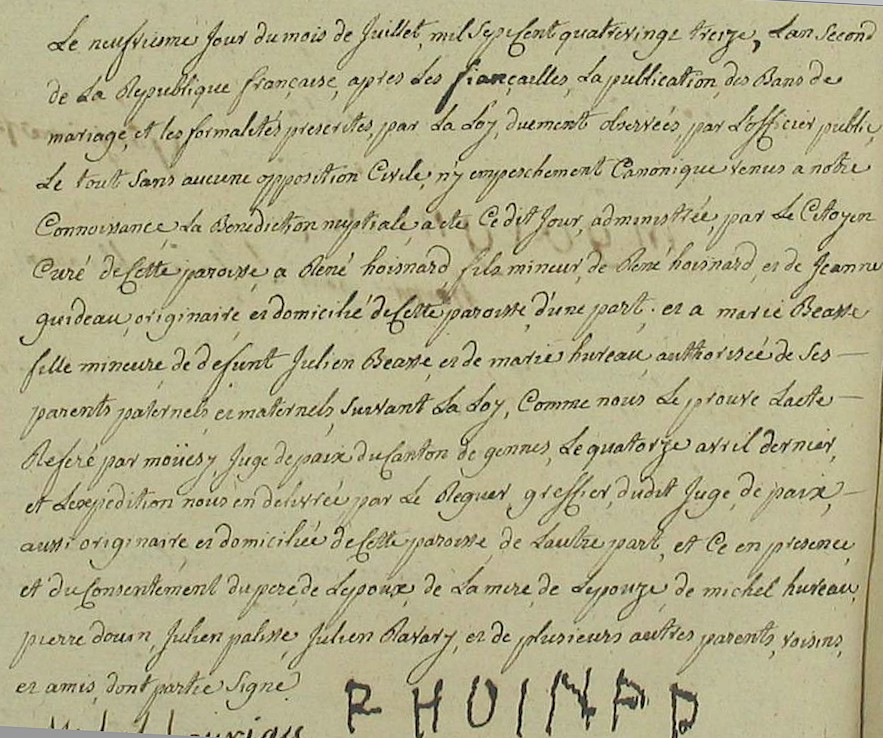 Le neufvieme Jour du mois de Juillet, mil Sept Cent quatrevingt treize, Lan Second
de La Republique française, apres Les fiançailles, La publication des Bans de
mariage, et les formalités prescrites, par La Loy, duement observées par L'officier public,
Le tout Sans aucune opposition Civile, n'y empeschement Canonique venus a notre
Connoissance, La Benediction nuptiale, a eté Cedit Jour, administrée, par Le Citoyen
Curé de Cette paroisse, a René hoisnard, fils mineur, de René hoisnard, et de Jeanne
guideau, originaire, et domicilié de Cette paroisse, d'une part. et a marie Beasse
fille mineure, de defunt Julien Beasse, et de marie hureau, authorisée de Ses
parents paternels, et maternels, Suivant La Loy, Comme nous Le prouve Lacte
Referé par moüesy, Juge de paix du Canton de gennes, Le quatorze avril dernier,
et Lexpedition nous en delivrée par Le Reguer, greffier, dudit Juge, de paix,
aussi originaire, et domiciliée de Cette paroisse, de Lautre part, et Ce en presence,
et du Consentement du pere, de Lepoux, de La mere, de Lepouze, de michel hureau,
pierre douin, Julien palisse, Julien Ravary, et de plusieurs autres parents, voisins,
et amis, dont partie Signé
R HOINARD